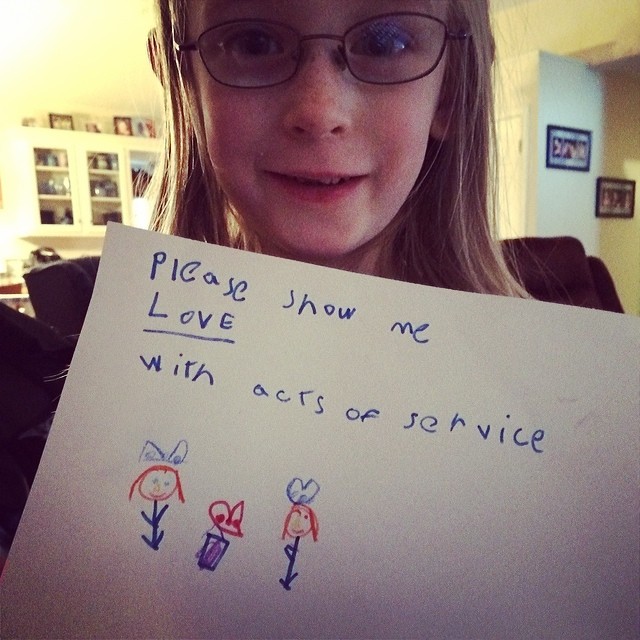 Please show me
LOVE
with acts of service